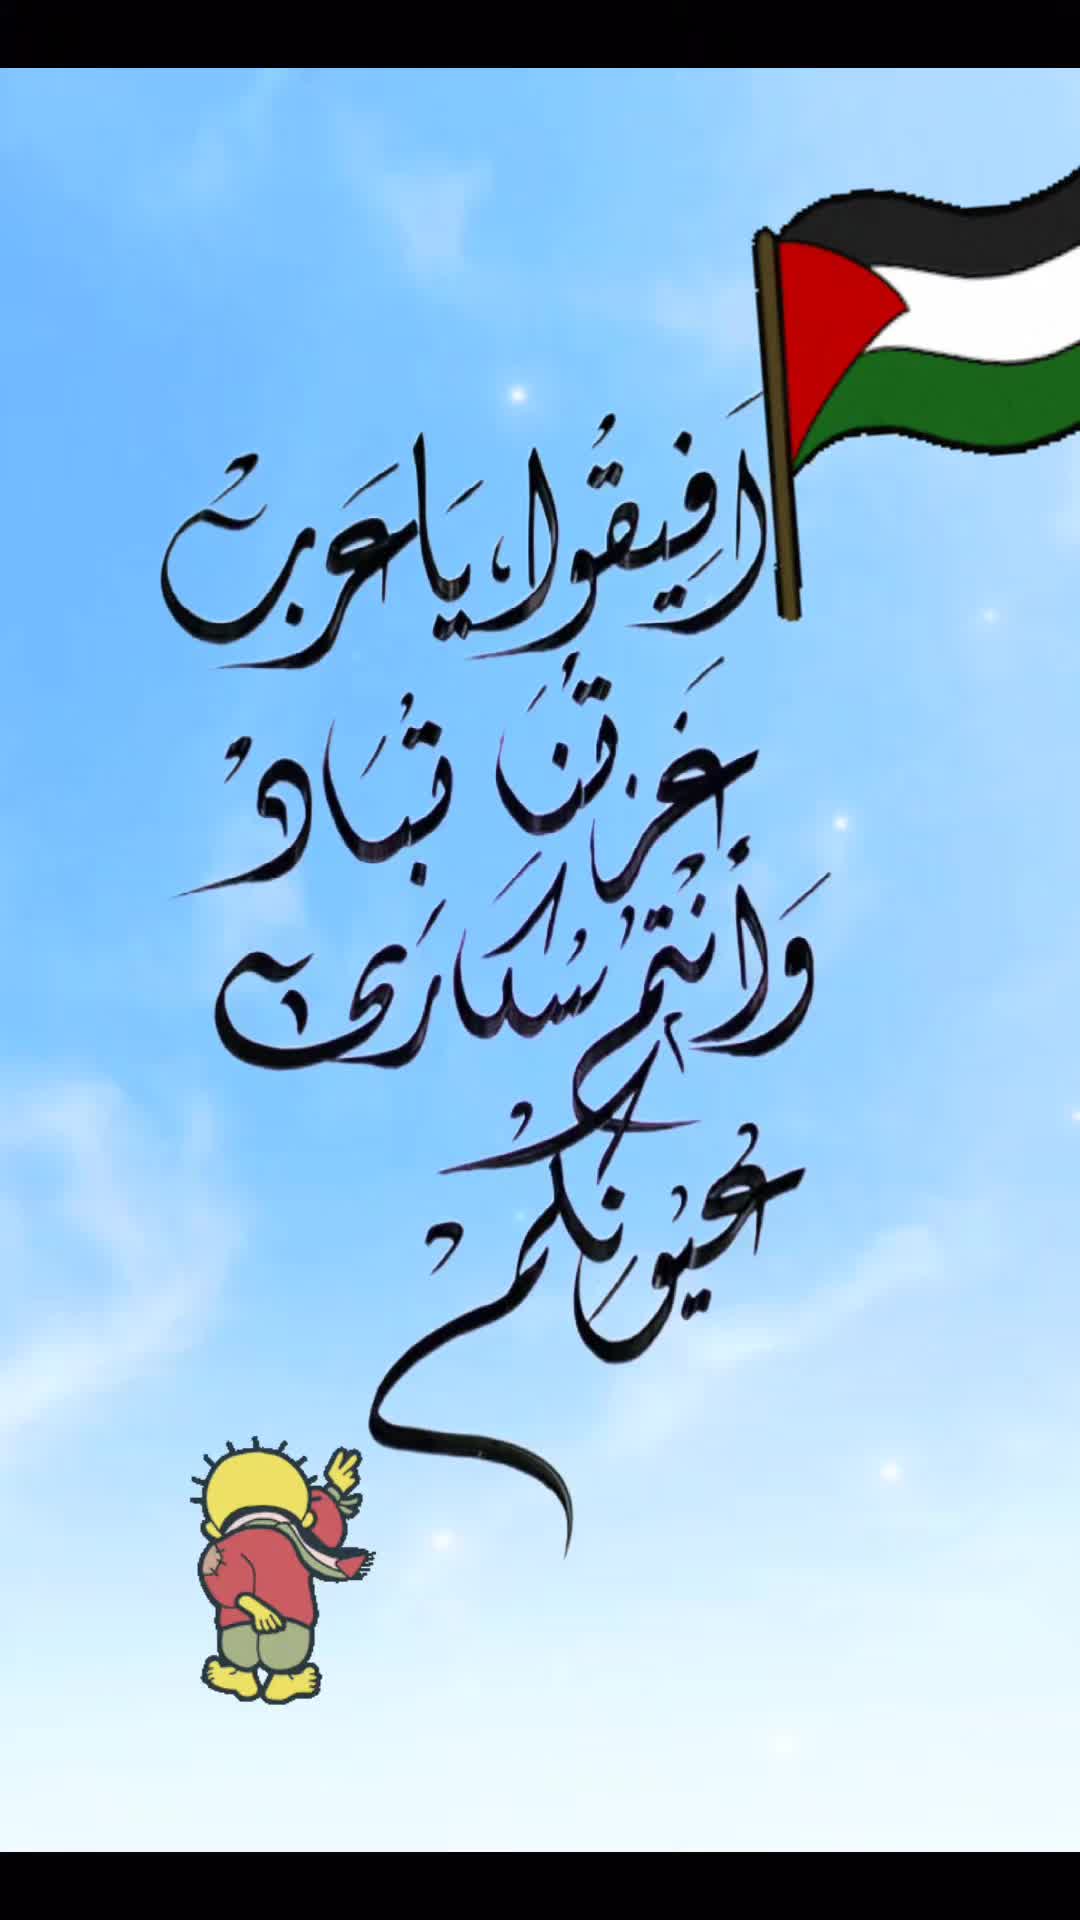 اَفِيقُوا، يَاعَرَبْ
غَزتُنَا تُبَادْ
وَأَنْتُمْ سُكَارَىْ
عُيُونَكُمْ